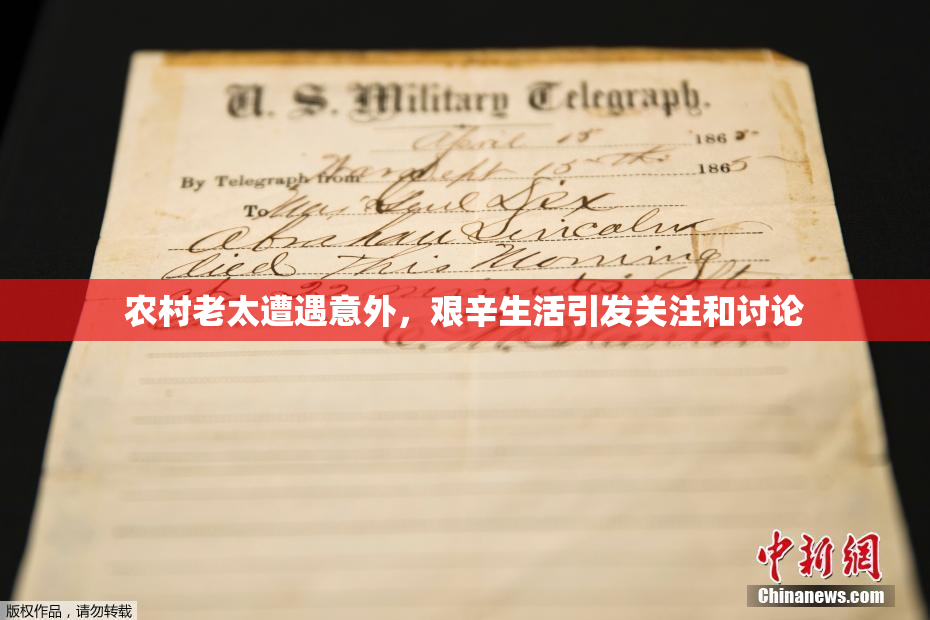 U. S. Military Telegraph.
April 15 1865
By Telegraph from War Dept 15th 1865
To Maj Genl Dix
Abraham Lincoln
died This Morning
at 22 minutes after
农村老太遭遇意外，艰辛生活引发关注和讨论
中新网
Chinanews.com
版权作品，请勿转载